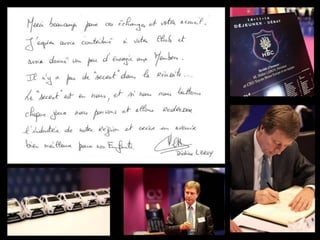 Merci beaucoup pour vos échanges et votre accueil !
J'espère avoir contribué à votre Club et
avoir donné un peu d'énergie aux Membres.
Il n'y a pas de "secret" dans la réussite...
Le "secret" est en nous, et si nous nous battons
chaque jour nous pouvons et allons redresser
l'industrie de notre région et avoir un avenir
bien meilleur pour nos Enfants.
Didier LEROY
DÉJEUNER - DÉBAT
HBC